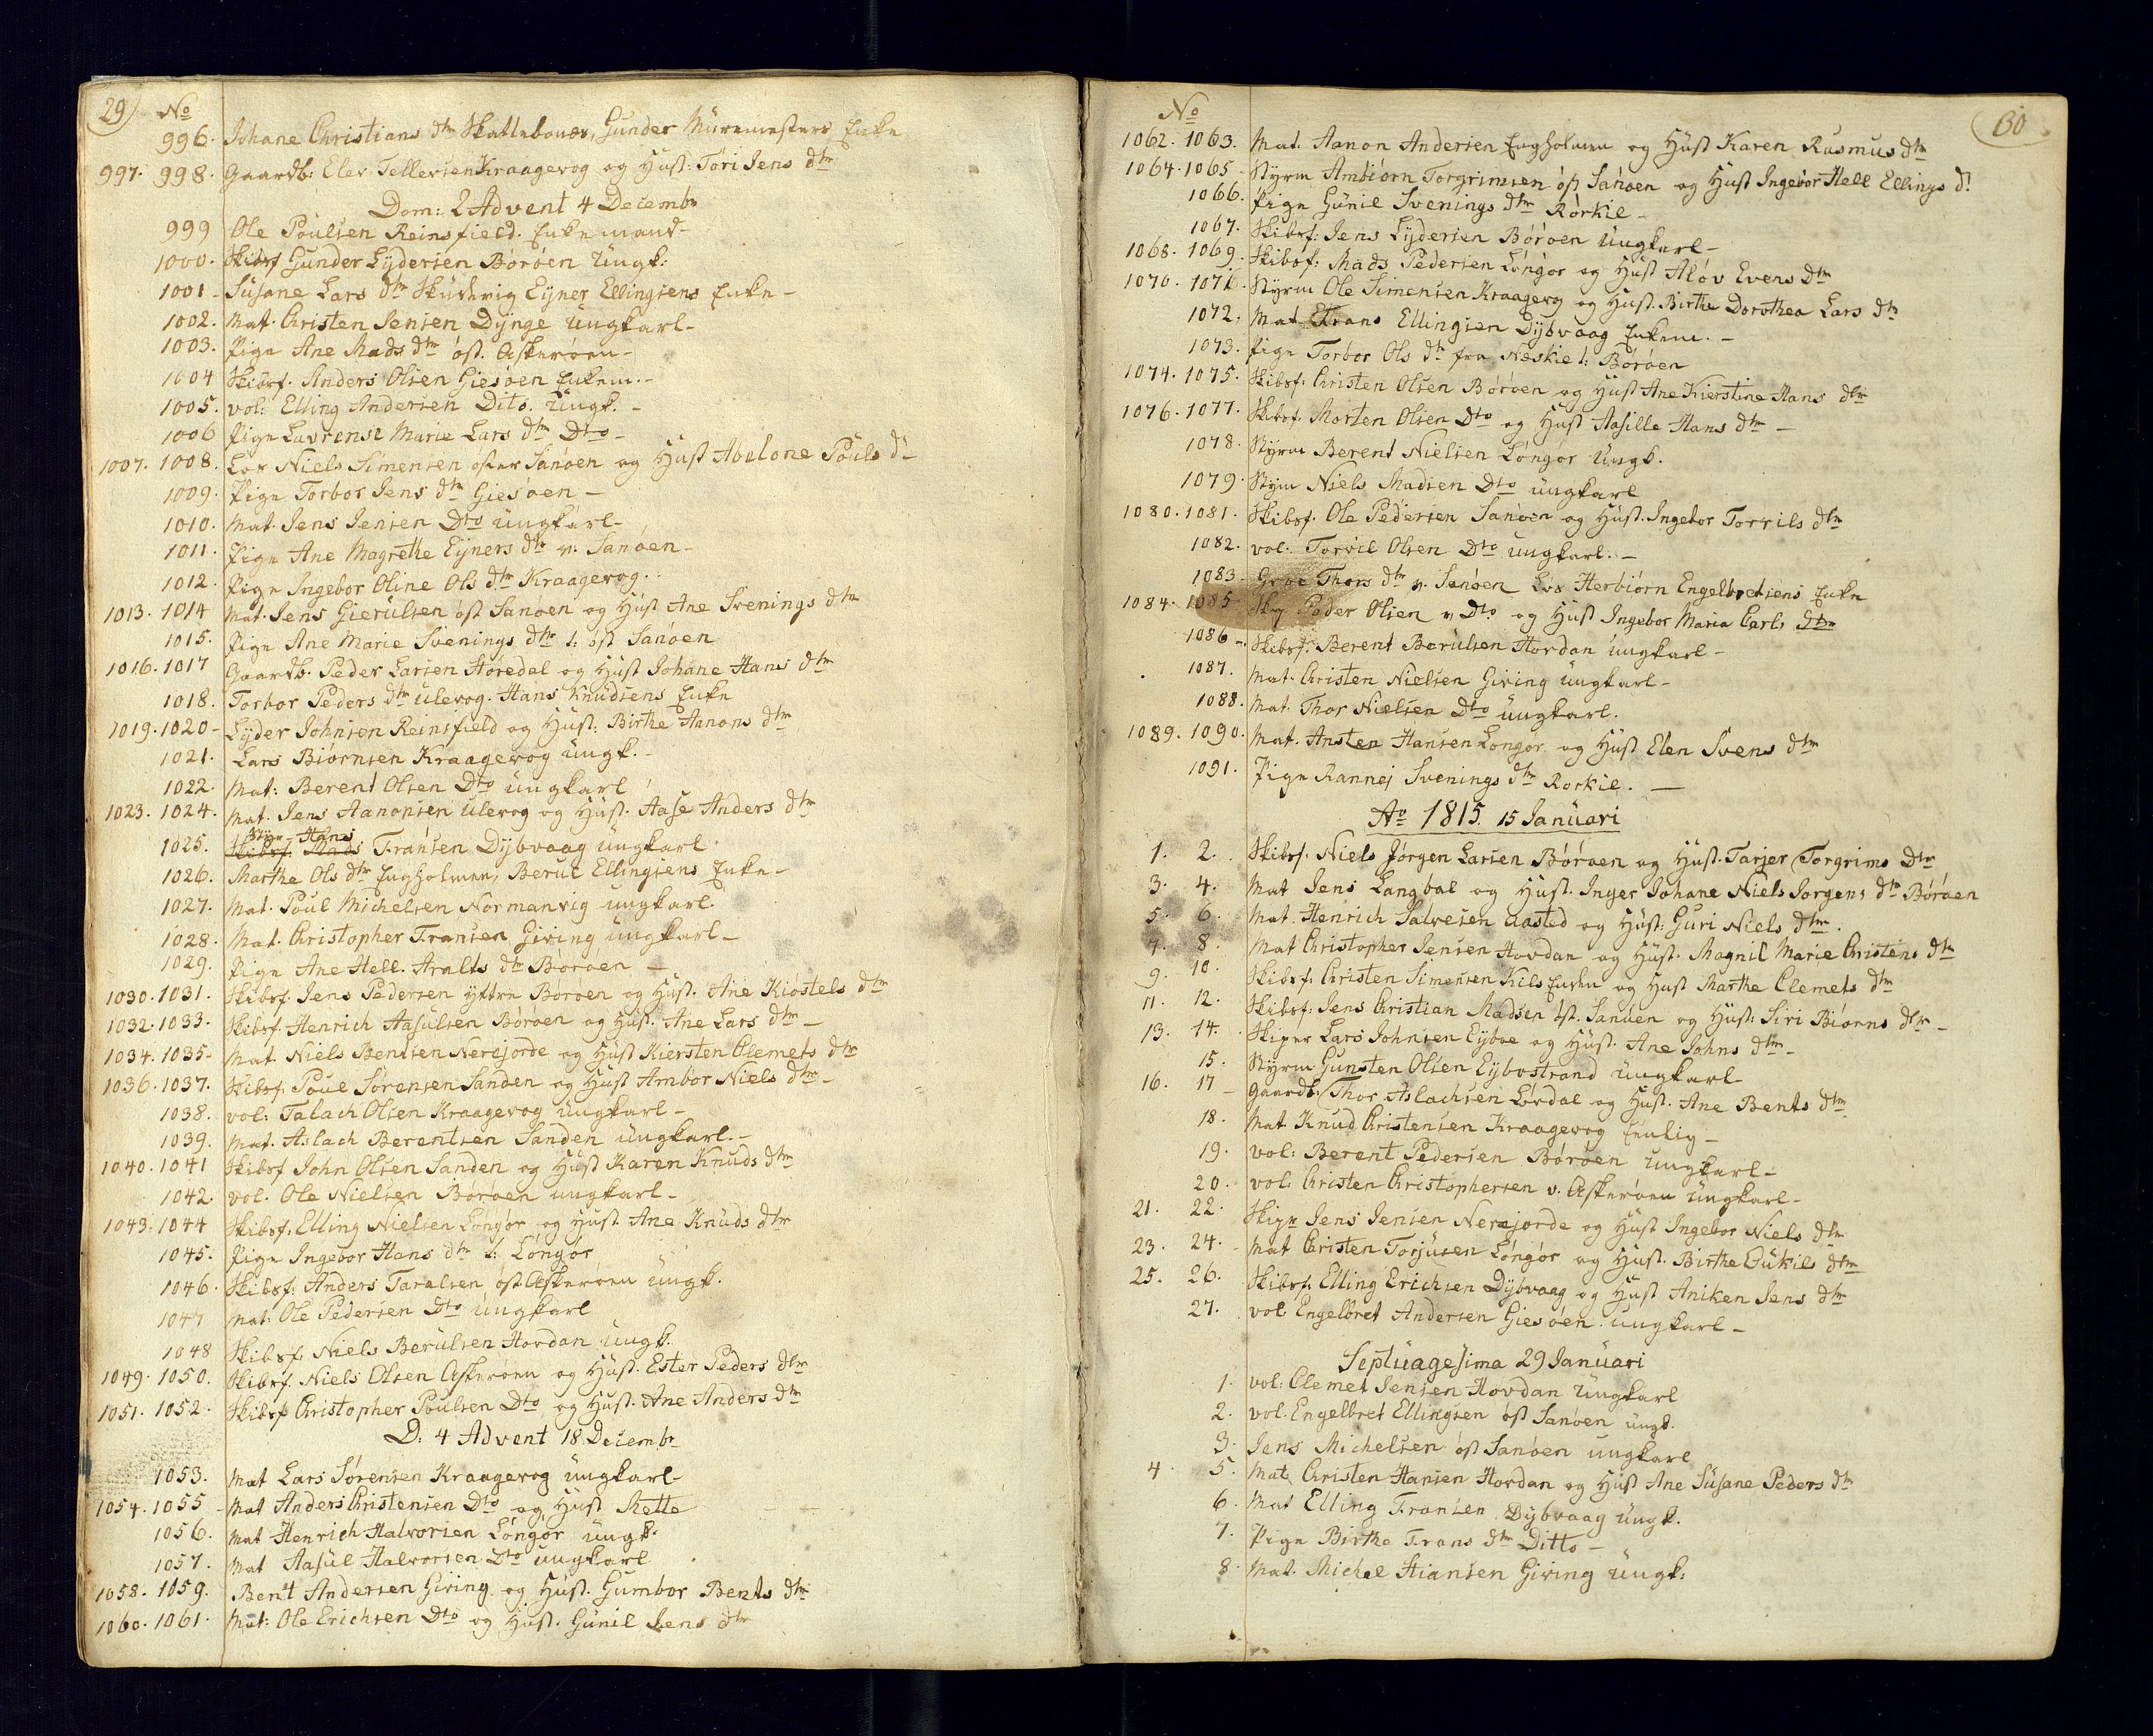 29
No
996. Johane Christians dtr Skattebonær, Gunder Müremesters Enke
997. 998. Gaardb: Elev Tellevsen Kraagevog og Hust: Töri Jens dtr
Dom: 2 Advent 4 Decembr
999 Ole Poulsen Reinsfield. Enkemand-
1000. Skibsf Gunder Lÿdersen Börøen Üngk:
1001- Süsane Lars dtr Eÿner Ellingsens Enke-
1002. Mat. Christen Jensen Dÿnge Üngkarl-
1003. Pige Ane Mads dtr öst. Askerøen-
1004 Skibsf. Anders Olsen Giesøen Enkem.-
1005. vol: Elling Andersen Dito. Üngk.-
1006 Pige Lavrense Marie Lars dtr Dto-
1007. 1008. Los Niels Simensen öster Sanøen og Hust Abelone Pöuls d:
1009. Pige Torbor Jens dtr Giesøen-
1010. Mat. Jens Jensen Dto üngkarl-
1011. Pige Ane Magrethe Eÿners dtr v. Sanøen-
1012. Pige Ingebor Oline Ols dtr Kraagevog.
1013. 1014 Mat. Jens Gierulsen öst Sanøen og Hust Ane Svenings dtr
1015. Pige Ane Marie Svenings dtr i: öst Sanøen
1016. 1017 Gaardb. Peder Larsen Støredal og Hust Johane Hans dtr
1018. Torbor Peders dtr Ulevog. Hans Knudsens Enke
1019. 1020- Lÿder Johnsen Reinsfield og Hust: Birthe Aanons dtr
1021. Lars Biørnsen Kraagevog üngk.-
1022. Mat: Berent Olsen Dto üngkarl
1023. 1024. Mat. Jens Aanonsen Ulevog og Hust. Aase Anders dtr
Styr Hans
1025. Skibsf. Mads Fransen Dÿbvaag üngkarl
1026. Marthe Ols dtr Engholmen, Berul Ellingsens Enke-
1027. Mat. Poul Michelsen Normanvig ungkarl.
1028. Mat. Christopher Fransen Giving ungkarl-
1029. Pige Ane Hell. Aralts dtr Børøen-
1030. 1031. Skibsf. Jens Pedersen ÿttre Børøen og Hust. Ane Kiøstels dtr
1032. 1033. Skibsf. Henrich Aasulsen Børøen og Hust. Ane Lars dtr-
1034. 1035- Mat. Niels Bentsen Nerejorde og Hust Kiersten Clemets dtr
1036. 1037. Skibsf. Poul Sørensen Sanden og Hust Ambor Niels dtr-
1038. vol: Talach Olsen Kraagevog üngkarl-
1039. Mat. Aslach Berentsen Sanden üngkarl.-
1040. 1041 Skibsf John Olsen Sanden og Hust Karen Knuds dtr
1042. vol. Ole Nielsen Børøen ungkarl-
1043. 1044 Skibsf. Elling Nielsen Løngør og Hust Ane Knuds dtr
1045. Pige Ingebor Hans dtr i: Løngør
1046. Skibsf: Anders Taralsen öst Askerøen üngk.
1047 Mat: Ole Pedersen Dto üngkarl
1048 Skibsf. Niels Berulsen Hovdan üngk.
1049. 1050. Skibsf. Niels Olsen Askerøen og Hust. Ester Peders dtr
1051. 1052. Skibsf Christopher Poulsen Dto og Hust. Ane Anders dtr
D: 4 Advent 18 Decembr
1053. Mat Lars Sørensen Kraagevog üngkarl-
1054. 1055- Mat Anders Christensen Dto og Hust Mette
1056. Mat Henrich Halvorsen Løngør üngk.
1057. Mat Aasül Halvorsen Dto üngkarl
1058. 1059. Bent Andersen Giving og Hust. Gumbor Bents dtr
1060. 1061. Mat: Ole Erichsen Dto og Hust. Günil Jens dtr
30
No
1062. 1063. Mat. Aanon Andersen Engholmen og Hust Karen Rasmus dtr
1064. 1065- Styrm Ambiørn Torgrimsen öst Sanøen og Hust Ingebor Hell Ellings d:
1066. Pige Günil Svenings dtr Rørkil-
1067. Skibsf: Jens Lÿdersen Børøen üngkarl-
1068. 1069. Skibsf: Mads Pedersen Løngør og Hust Aløv Evens dtr
1070. 1071. Styrm Ole Simensen Kraagevog og Hust. Birthe Dorothea Lars dtr
1072. Mat Frans Ellingsen Dÿbvaag Enkem.-
1073. Pige Torbor Ols dtr fra Næskil i: Børøen
1074. 1075. Skibsf: Christen Olsen Børøen og Hust Ane Kierstine Hans dtr
1076. 1077. Skibsf. Morten Olsen Dto og Hust Aasille Hans dtr-
1078. Styrm Berent Nielsen Løngør üngk.
1079. Stym Niels Madsen Dto üngkarl
1080. 1081. Skibsf. Ole Pedersen Sanøen og Hust. Ingebor Torrils dtr
1082. vol. Torvil Olsen Dto ungkarl.-
1083- Thors dtr v. Sanøen Los Herbiørn Engelbretsens Enke
1084. 1085 Peder Olsen v Dto og Hust Ingebor Maria Carls dtr
1086- Skibsf: Berent Berulsen Hovdan üngkarl-
1087. Mat. Christen Nielsen Giving üngkarl-
1088. Mat. Thor Nielsen Dto üngkarl.
1089. 1090. Mat. Ansten Hansen Longor og Hust Elen Svens dtr
1091. Pige Rannej Svenings dtr Rorkil.-
Ao 1815. 15 Januari
1. 2. Skibsf. Niels Jørgen Larsen Børøen og Hust. Tarjer Torgrims Dtr
3. 4. Mat Jens Langbal og Hust. Inger Johane Niels Jorgens dtr Børøen
5. 6. Mat. Henrich Salvesen Aasted og Hust: Guri Niels dtr.
7. 8. Mat Christopher Jensen Hovdan og Hust. Magnil Marie Christens dtr
9. 10. Skibsf. Christen Simensen Kils Enden og Hust Marthe Clemets dtr
11. 12. Skibsf: Jens Christian Madsen öst. Sanøen og Hust: Siri Biørns dtr-
13. 14. Skiper Lars Johnsen Eÿboe og Hust. Ane Johns dtr-
15. Styrm Gunsten Olsen Eÿbostrand üngkarl
16. 17- Gaardb: Thor Aslachsen Lövdal og Hust. Ane Bents dtr
18. Mat Knud Christensen Kraagevog Eenlig-
19. vol: Berent Pedersen Børøen üngkarl-
20. vol: Christen Christophersen v. Askerøen üngkarl-
21. 22. Skipr Jens Jensen Nerejorde og Hust Ingebor Niels dtr
23. 24. Mat Christen Torjüsen Løngør og Hust. Birthe Bükils dtr
25. 26. Skibsf: Elling Erichsen Dÿbvaag og Hust Aniken Jens dtr
27. vol Engelbret Andersen Giesøen ungkarl-
Septuagesima 29 Januari
1. vol: Clemet Jensen Hovdan üngkarl
2. vol. Engelbret Ellingsen öst Sanøen üngk.
3. Jens Michelsen öst Sanøen ungkarl
4. 5. Mat. Christen Hansen Hovdan og Hust Ane Süsane Peders dtr
6. Mat Elling Fransen Dÿbvaag üngk.
7. Pige Birthe Frans dtr Ditto-
8. Mat. Michel Stiansen Giving üngk: